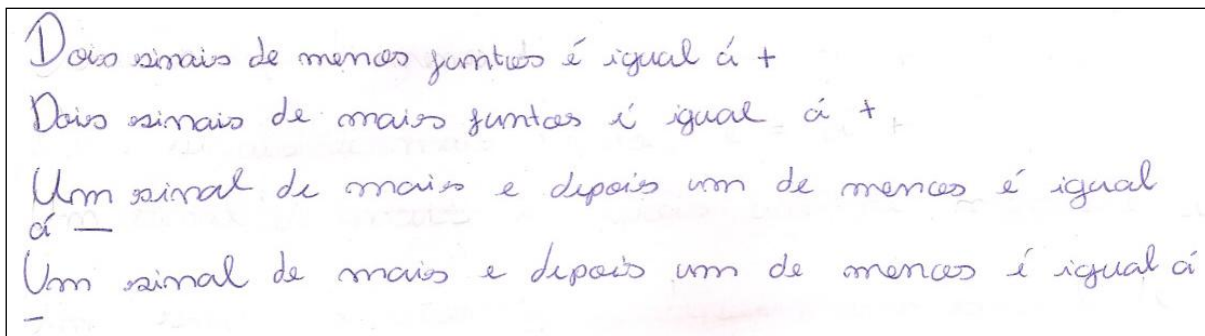 Dois sinais de menos juntos é igual á +
Dois sinais de mais juntos é igual á +
Um sinal de mais e depois um de menos é igual
á —
Um sinal de mais e depois um de menos é igual á
-